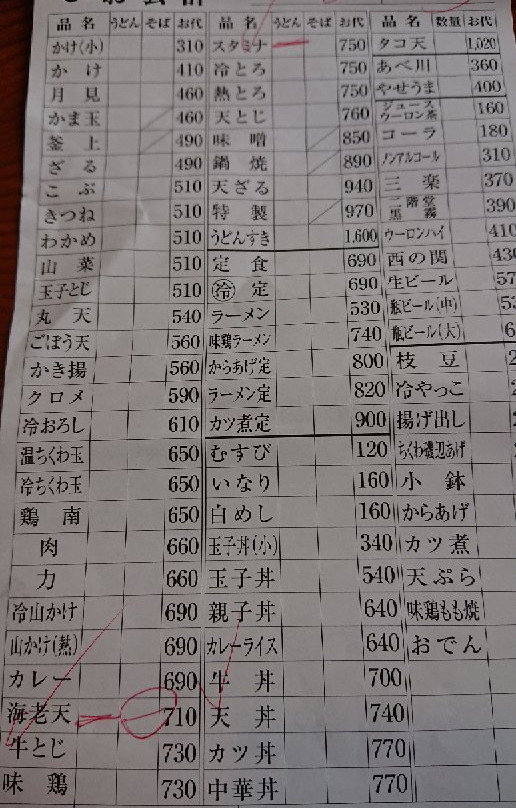 品名 うどん そば お代
かけ(小) 310
かけ 410
月見 460
かま玉 460
釜上 490
ざる 490
こぶ 510
きつね 510
わかめ 510
山菜 510
玉子とじ 510
丸天 540
ごぼう天 560
かき揚 560
クロメ 590
冷おろし 610
温ちくわ玉 650
冷ちくわ玉 650
鶏南 650
肉 660
力 660
冷山かけ 690
山かけ(熱) 690
カレー 690
海老天 710
牛とじ 730
味鶏 730
品名 うどん そば お代
スタミナ 750
冷とろ 750
熱とろ 750
天とじ 760
味噌 850
鍋焼 890
天ざる 940
特製 970
うどんすき 1,600
定食 690
冷定 690
ラーメン 530
味鶏ラーメン 740
からあげ定 800
ラーメン定 820
カツ煮定 900
むすび 120
いなり 160
白めし 160
玉子丼(小) 340
玉子丼 540
親子丼 640
カレーライス 640
牛丼 700
天丼 740
カツ丼 770
中華丼 770
品名 数量 お代
タコ天 1,020
あべ川 360
やせうま 400
ジュース
ウーロン茶 160
コーラ 180
ノンアルコール 310
三楽 370
二階堂
黒霧 390
ウーロンハイ 410
西の関
生ビール
瓶ビール(中)
瓶ビール(大)
枝豆
冷やっこ
揚げ出し
ちくわ磯辺あげ
小鉢
からあげ
カツ煮
天ぷら
味鶏もも焼
おでん